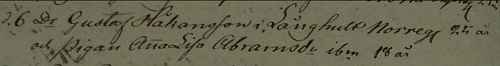 d. 6 Dr. Gustaf Håkansson i Långhult Norreg. 25 år
och Pigan Ana Lisa Abramsdr ibm 18 år